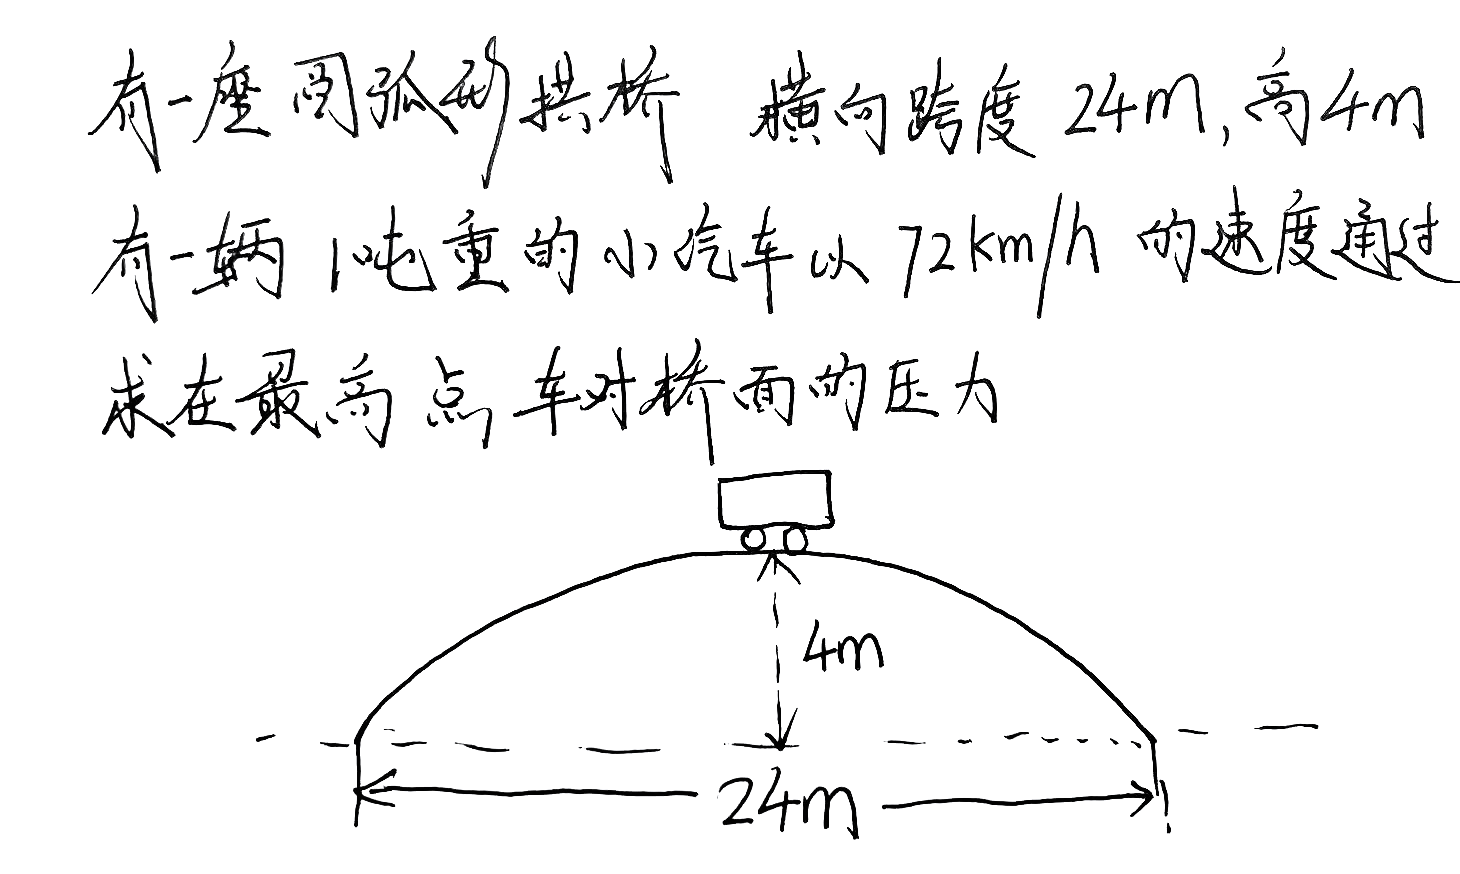 有一座圆弧形拱桥 横向跨度 24m,高4m
有一辆 1吨重的小汽车以 72km/h 的速度通过
求在最高点 车对桥面的压力
4m
24m